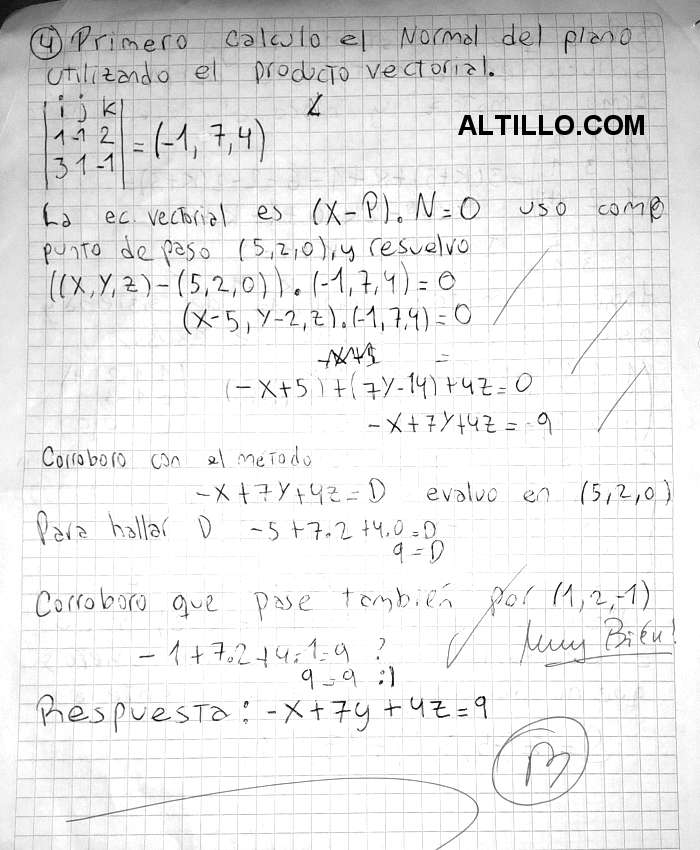 ④ Primero calculo el Normal del plano
utilizando el producto vectorial.
ALTILLO.COM
|i j k|
|1 -1 2| = (-1, 7, 4)
|3 1 -1|
La ec. vectorial es (X-P). N=0 uso como
punto de paso (5,2,0), y resuelvo
((X,Y,Z)-(5,2,0)).(-1,7,4)=0
(X-5, Y-2, Z).(-1,7,4)=0
=
(-X+5)+(7Y-14)+4Z=0
-X+7Y+4Z=9
Corroboro con el metodo
-X+7Y+4Z=D evaluo en (5,2,0)
Para hallar D -5+7.2+4.0=D
9=D
Corroboro que pase también por (1,2,-1)
-1+7.2+4.-1=9 ?
Muy Bien!
9=9 :)
Respuesta: -X+7y+4Z=9
B